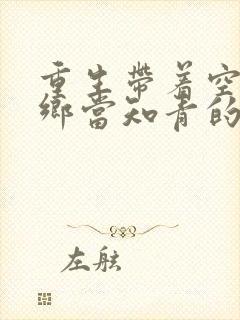 重生带着空
乡当知青的
左舷